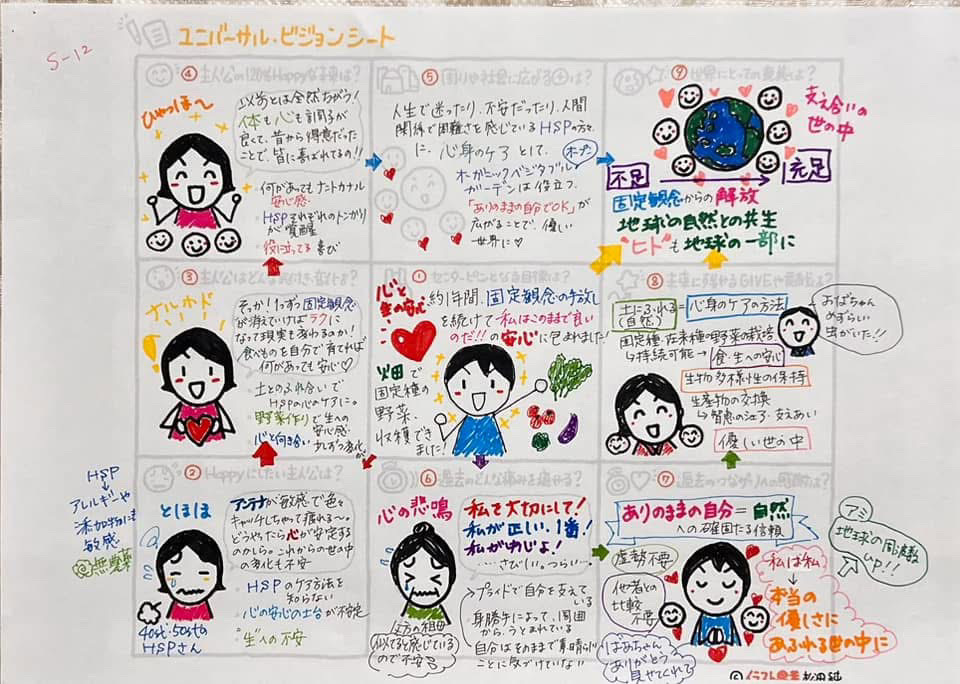 S-12
ユニバーサル・ビジョンシート
④ 主人公の120%Happyな未来は?
ひゃっほ〜
以前とは全然ちがう!
体も心も調子が
良くて、昔から得意だった
ことで、皆に喜ばれてるの!!
何があってもナントカナル
安心感
HSPそれぞれのトンガリ
が覚醒
役に立ってる喜び
⑤ 周りや社会に広がる⊕は?
人生で迷ったり、不安だったり、人間
関係で困難さを感じているHSPの方々
に、心身のケアとして、
オーガニックベジタブル
ガーデンは役立つ。
「ありのままの自分でOK」が
広がることで、優しい
世界に♡
⑨ 世界にとっての貢献は?
支え合いの
世の中
不足
充足
固定観念からの解放
地球の自然との共生
"ヒト"も地球の一部に
③
ナルホド
そか!1つずつ固定観念
が消えていけばラクに
なって現実も変わるのか!
食べものを自分で育てれば
何があっても安心♡
土とのふれ合いで
HSPの心ケアに。
野菜作りで生への
安心感
心と向き合い
① センターピンとなる目標は?
心と
生の安心
約1年間、固定観念の手放し
を続けて私はこのままで良い
のだ!!の安心に包まれました!
畑で
固定種の
野菜、
収穫でき
ました!
⑧
土にふれる
(自然)
=心身のケアの方法
固定種・在来種の野菜の栽培
↳持続可能→食・生への安心
生物多様性の保持
生産物の交換
↳智恵のシェア・支えあい
優しい世の中
おばちゃん
めずらしい
虫がいた!!
HSP
↓
アレルギーや
添加物にも
敏感
@無農薬
② Happyにしたい主人公は?
とほほ
アンテナが敏感で色々
キャッチしちゃって疲れる〜。
どうやったら心が安定する
のかしら。これからの世の中
の変化も不安
HSPのケア方法を
知らない
心の安心の土台が不安定
"生"への不安
40st・50st
HSPさん
⑥ 過去のどんな痛みを癒せる?
心の悲鳴
私を大切にして!
私が正しい、1番!
……さびしい。つらい…。
プライドで自分を支えている
身勝手によって、周囲
から、うとまれている
自分はそのままで素晴らしい
ことに気づけていない
父方の祖母
似てると感じている
ので不安
⑦
ありのままの自分=自然
への確固たる信頼
虚勢不要
他者との
比較
不要
ばあちゃん
ありがとう
見せてくれて
私は私
↓
本当の
優しさに
あふれる世の中に
アミ
地球の周波数
UP!!